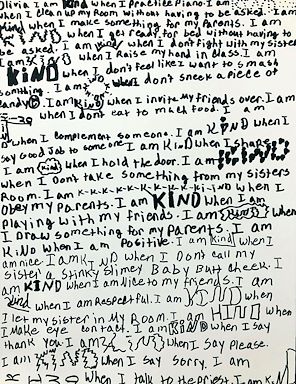 Olivia I am kind when I Practice Piano. I am
when I clean up my Room without having to be asked. I am
kind when I make something for my Parents. I am
when I get ready for bed without having to
be asked. I am kind when I don't fight with my sister
I am KIND when I Raise my hand in class. I am
KIND when I don't feel like I want to smash
something. I am when I don't sneak a piece of
candy. I am KIND when I invite my friends over. I am
when I don't eat to much food. I am
when I complement someone. I am KIND when I
say Good Job to someone I am KinD when I share
I am kind when I hold the door. I am
when I Don't take something from my sisters
Room. I am K-K-K-K-K-K-K-ki-IND when I
obey my Parents. I am KIND when I am
Playing with my friends. I am kind when
I Draw something for my Parents. I am
KiND when I am Positive. I am kind when I
am nice. I am KIND when I Dont call my
sister a Stinky Slimey Baby Butt cheek. I
am KIND when I am Nice to my friends. I am
kind when I am Respectful. I am KIND when
I let my sister in My Room. I am KIND when
I Make eye contact. I am KIND when I say
thank you I am KIND when I Say Please.
I am KIND when I say sorry. I am
KIND when I talk to the Priest. I am